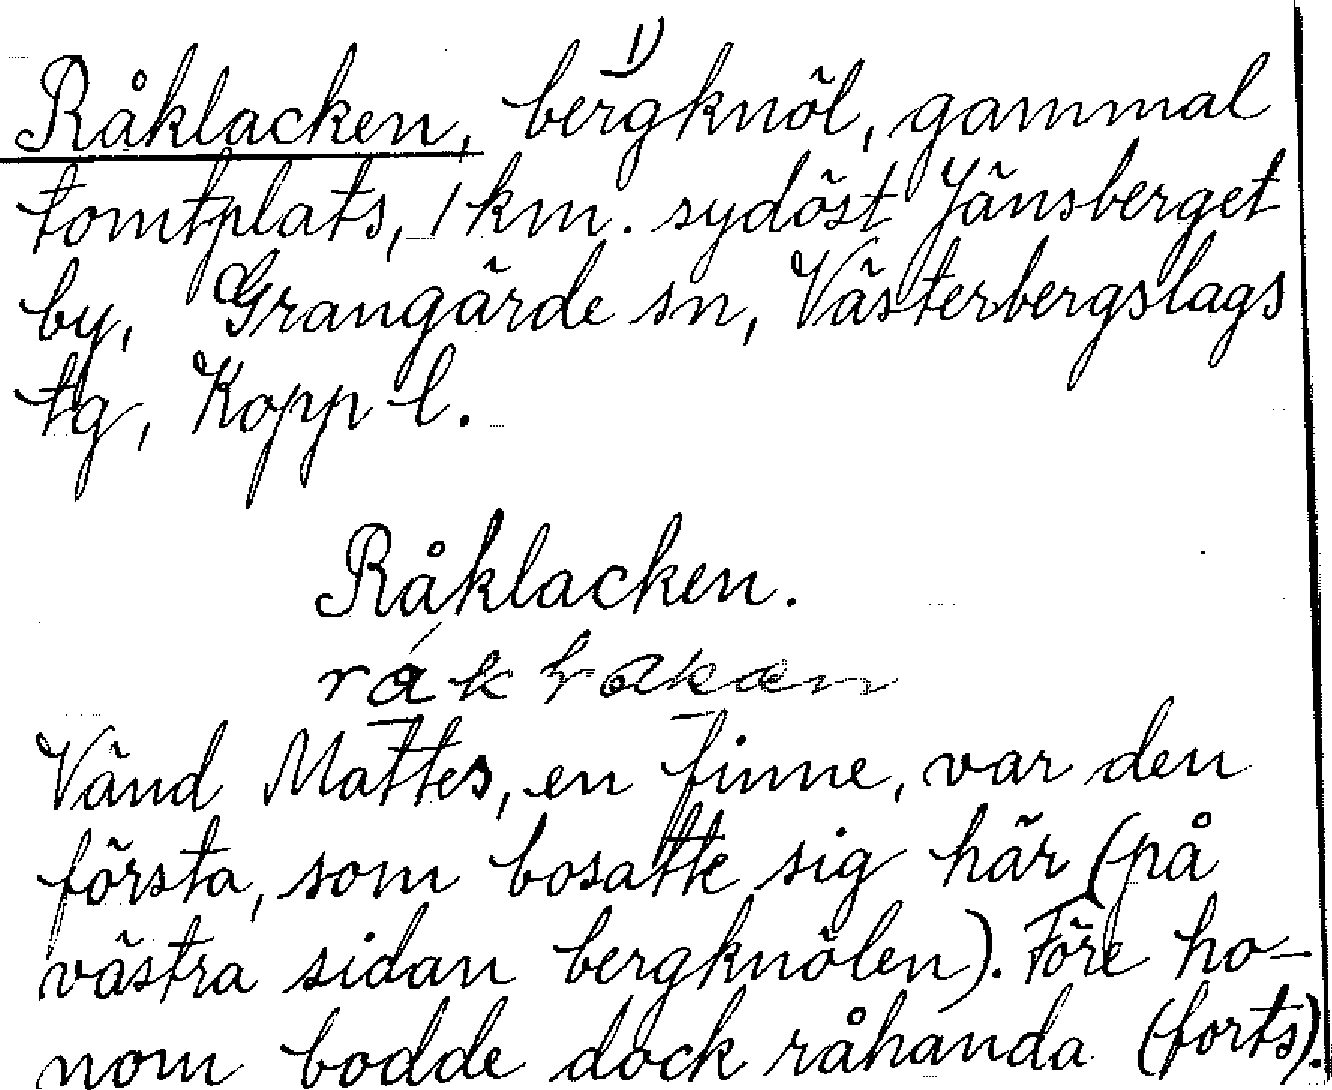 Råklacken, bergknöl, 1) gammal
tomtplats, 1 km. sydöst Jänsberget
by, Grangärde sn, Västerbergslags
tg, Kopp l.
Råklacken.
Vänd Mattes, en finne, var den
första, som bosatte sig här (på
västra sidan bergknölen). Före ho-
nom bodde dock råhanda (forts).